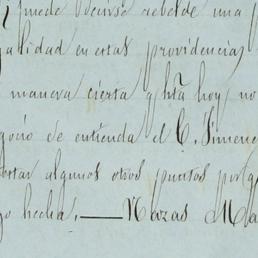 puede decirse rebelde una p
alidad en estas providencias
manera cierta q hta hoy, no
gocio de entienda el C. Simene
ertar algunos otros puntos pr q
go hecha. — Nazas Ma